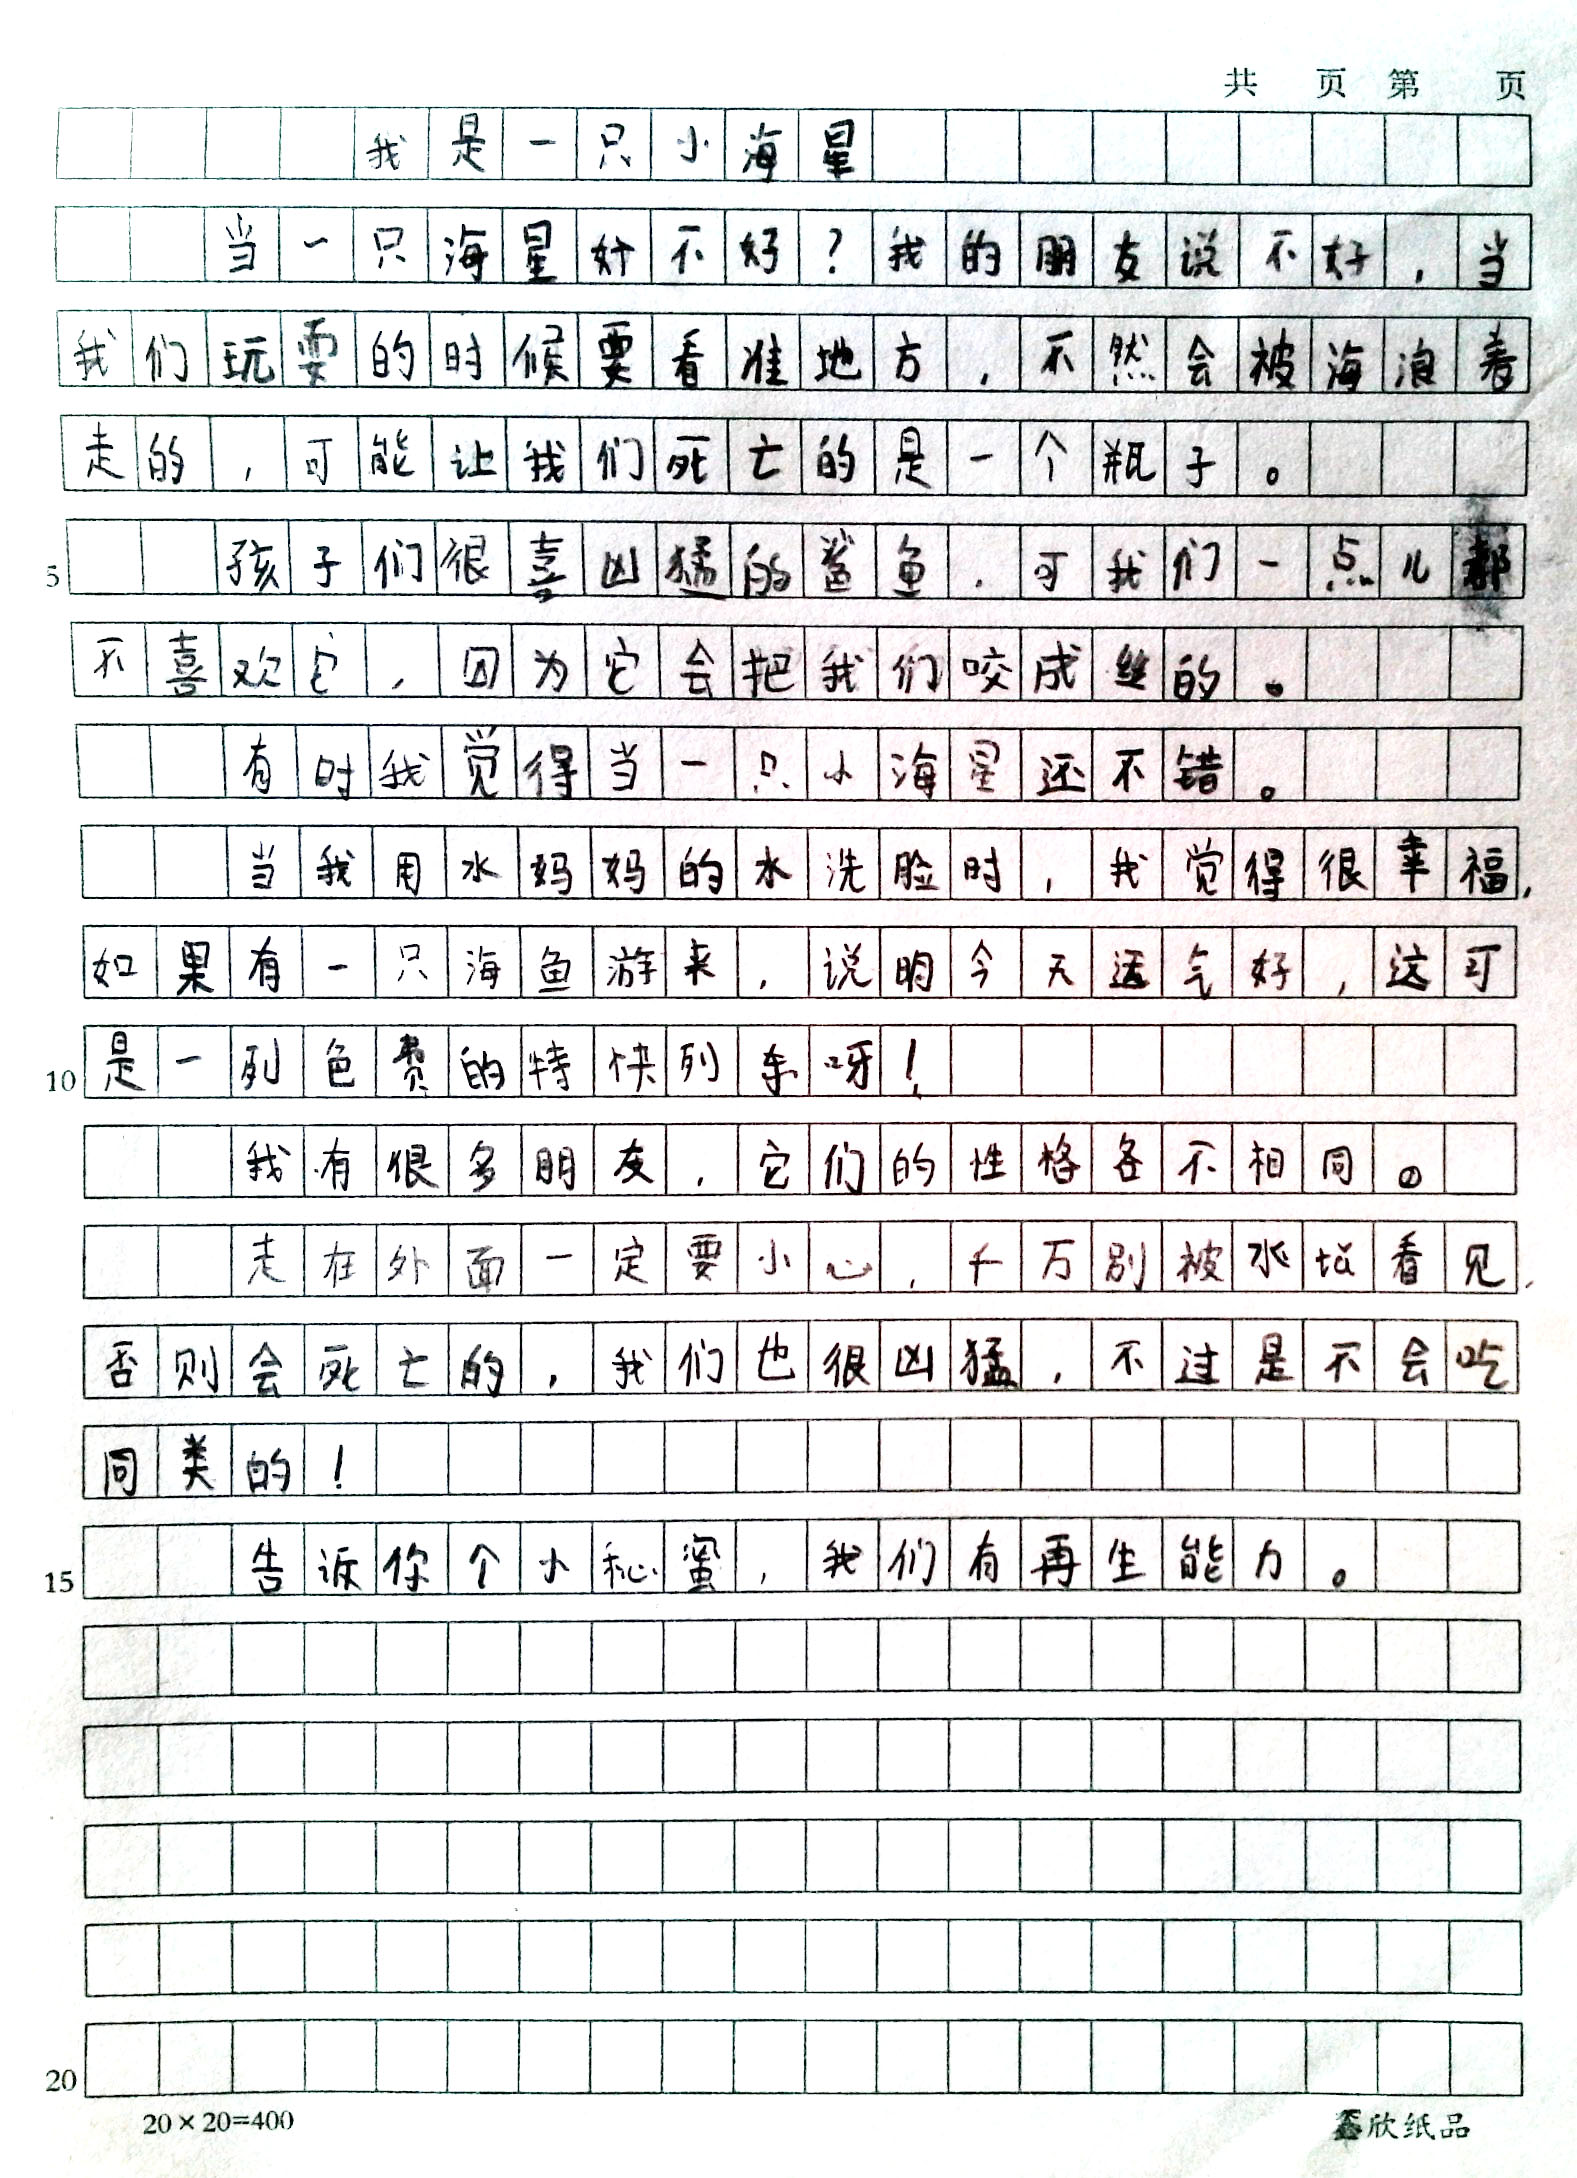 共 页 第 页
我是一只小海星
当一只海星好不好？我的朋友说不好，当
我们玩耍的时候要看准地方，不然会被海浪卷
走的，可能让我们死亡的是一个瓶子。
5 孩子们很喜凶猛的鲨鱼，可我们一点儿都
不喜欢它，因为它会把我们咬成丝的。
有时我觉得当一只小海星还不错。
当我用水妈妈的水洗脸时，我觉得很幸福，
如果有一只海鱼游来，说明今天运气好，这可
10 是一列免费的特快列车呀！
我有很多朋友，它们的性格各不相同。
走在外面一定要小心，千万别被水坑看见，
否则会死亡的，我们也很凶猛，不过是不会吃
同类的！
15 告诉你个小秘蜜，我们有再生能力。
20
20×20=400 鑫欣纸品